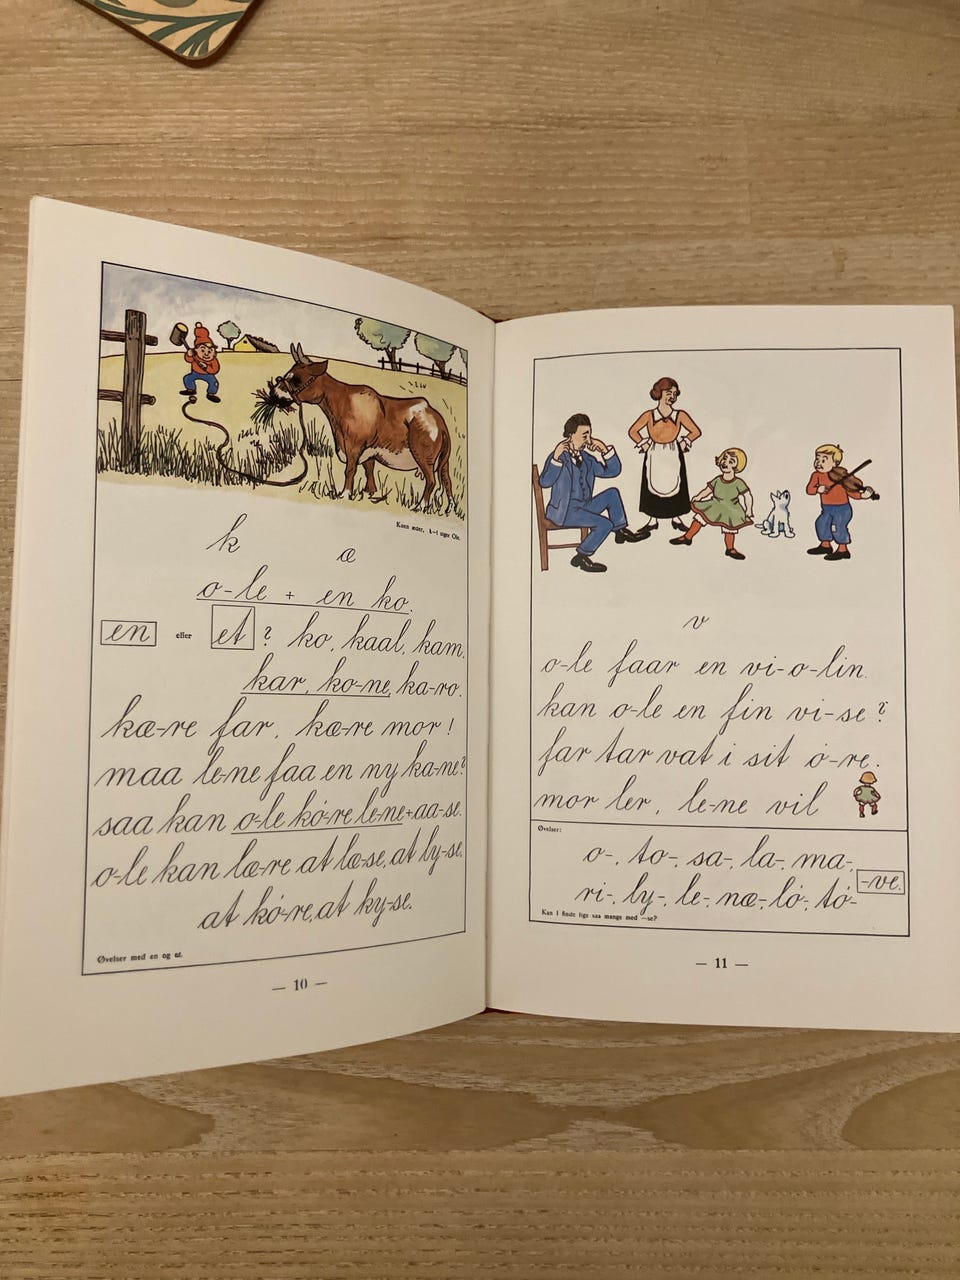 Koen æder, k—i siger Ole.
k æ
o-le + en ko.
en eller et ? ko, kaal, kam,
kar, ko-ne, ka-ro.
kæ-re far, kæ-re mor!
maa le-ne faa en ny ka-ne?
saa kan o-le kó-re le-ne + aa-se.
o-le kan læ-re at læ-se, at ly-se,
at kó-re, at ky-se.
Øvelser med en og et.
— 10 —
v
o-le faar en vi-o-lin.
kan o-le en fin vi-se?
far tar vat i sit ó-re.
mor ler, le-ne vil
Øvelser:
o-, to-, sa-, la-, ma-,
ri-, ly-, le-, næ-, ló-, tó- -ve.
Kan I finde lige saa mange med —se?
— 11 —